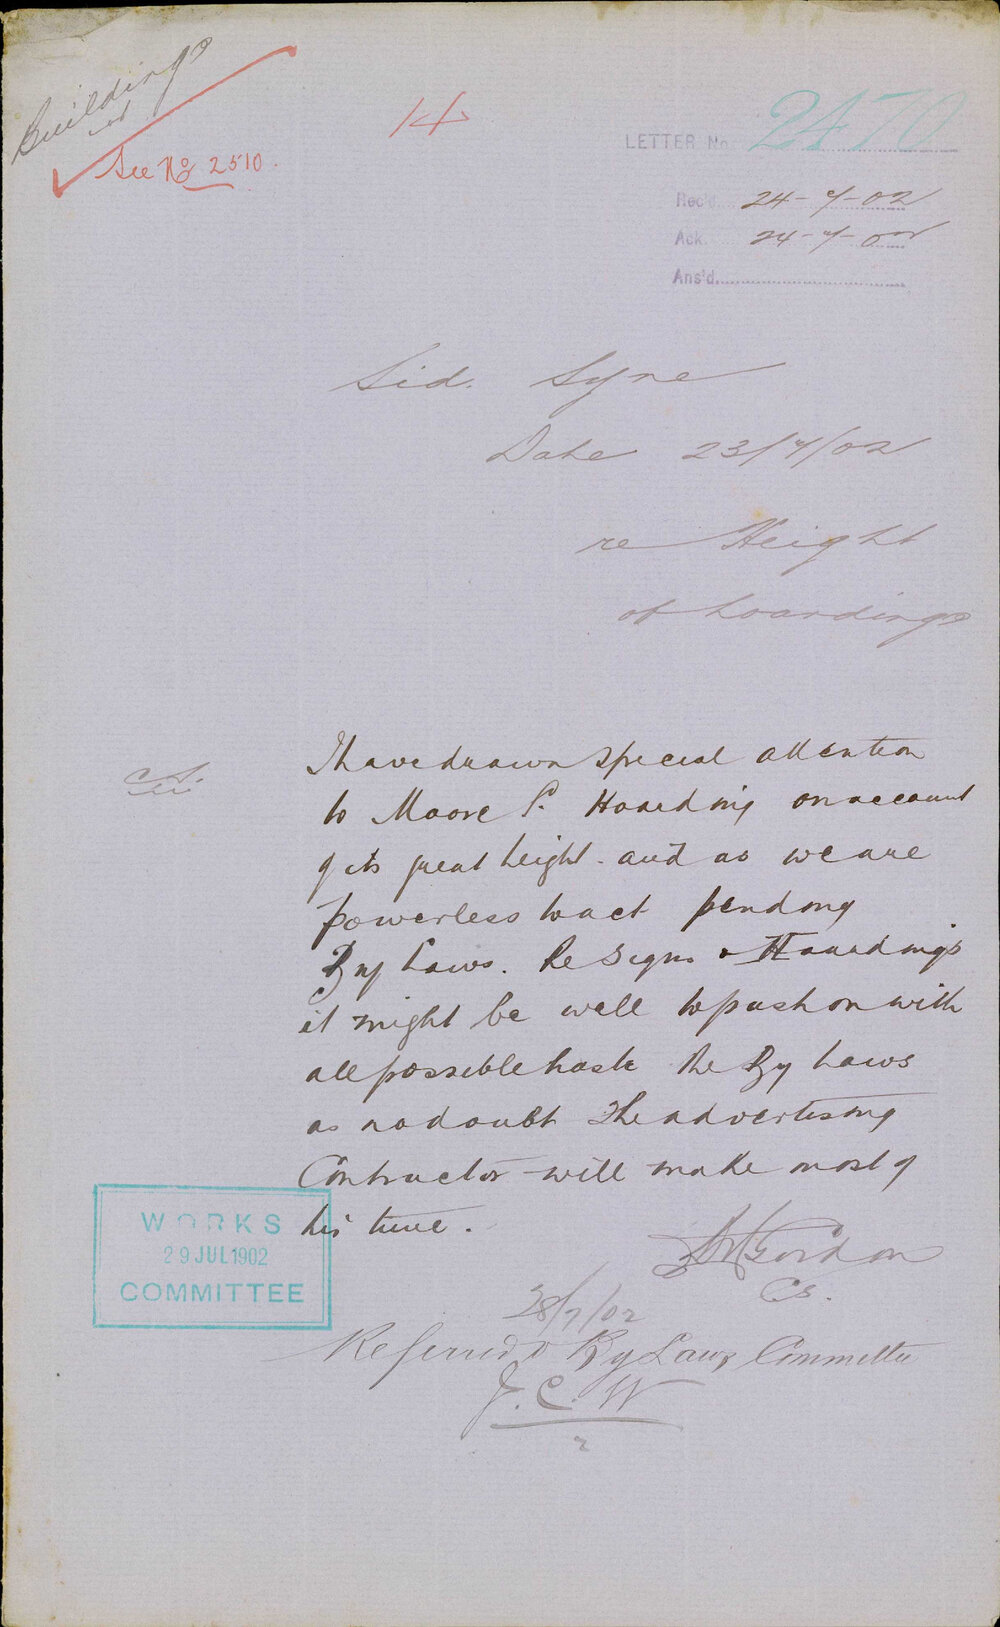 Buildings
See No 2510.
14
LETTER No. 2470
Rec'd. 24-7-02
Ack. 24-7-02
Ans'd.
Sid. Syre
Date 23/7/02
re Height
of hoardings
I have drawn special attention
to Moore P. Hoarding on account
of its great height. and as we are
powerless to act pending
By Laws. Re Signs & Hoardings
it might be well to push on with
all possible haste the By Laws
as no doubt the advertising
Contractor will make most of
his time.
Gordon
CS.
WORKS
29 JUL 1902
COMMITTEE
28/7/02
Referred By Laws Committee
J. C. W